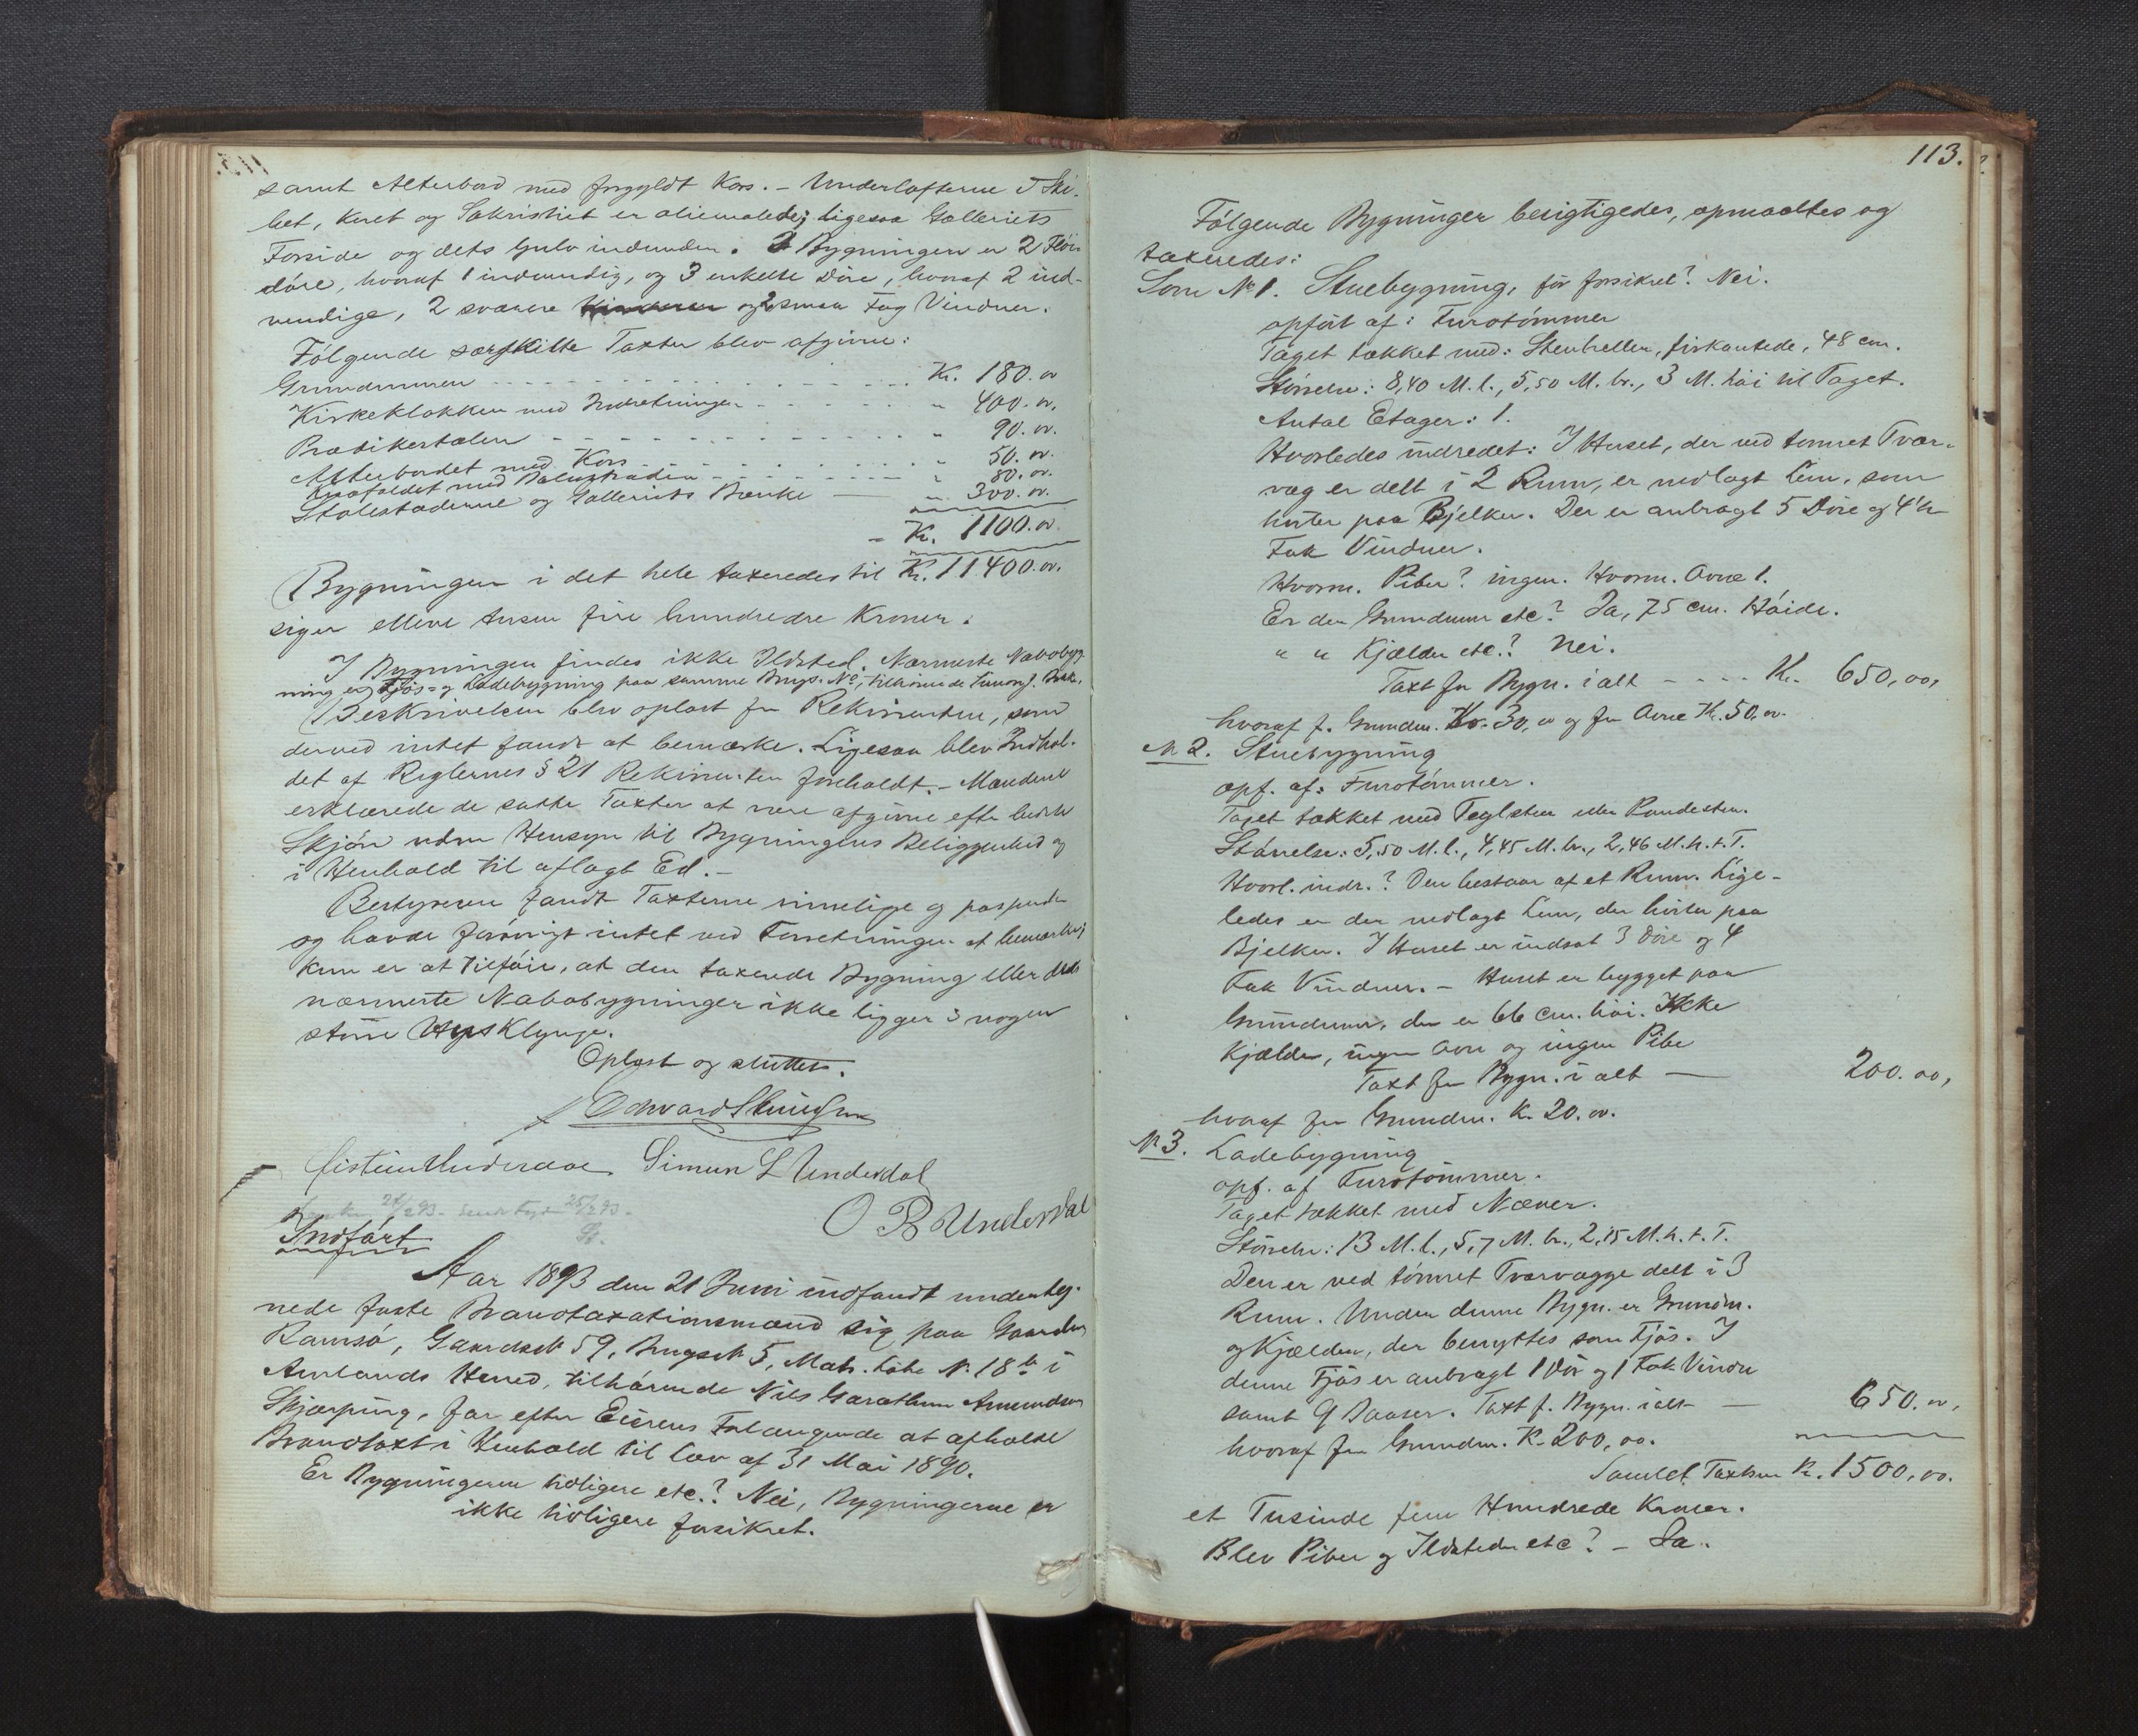 samt Alterbord med forgyldt Kors. - Underlofterne i Ski-
bet, Koret og Sakristiet er oliemalede; ligesaa Galleriets
Forside og dets Gulv indunder. I Bygningen er 2 Flöi-
döre, hvoraf 1 indvendig, og 3 enkelte Döre, hvoraf 2 ind-
vendige, 2 svære og 2 smaa Fag Vinduer.
Fölgende særskilte Taxter blev afgivne:
Grundmuren - - - - Kr. 180.00
Kirkeklokken med Indretninger - - - - " 400.00,
Prædikestolen - - - - " 90.00.
Alterbordet med Kors - - - - " 50.00.
Knæfaldet med Balustraden - - - - " 80.00.
Stolestaderne og Galleriets Bænke — " 300.00.
- Kr. 1100.00
Bygningen i det hele taxeredes til Kr. 11400.00.
siger elleve tusen fire hundredre Kroner.
I Bygningen findes ikke Ildsted. Nærmeste Nabobyg-
ning er Fjös- og Ladebygning paa samme Brugs-No, tilhörende
Beskrivelsen blev oplæst for Rekvirenten, som
derved intet fandt at bemærke. Ligesaa blev Indhol-
det af Reglernes § 21 Rekvirenten foreholdt. - Mændene
erklærede de satte Taxter at være afgivne efter bedste
Skjön uden Hensyn til Bygningens Beliggenhed og
i Henhold til aflagt Ed. -
Bestyreren fandt Taxterne rimelige og passende
og havde forövrigt intet ved Forretningen at bemærke;
kun er at tilföie, at den taxerede Bygning eller dets
nærmeste Nabobygninger ikke ligger i nogen
större Husklynge.
Oplæst og sluttet.
Simon L Underdal
O B Underdal
24/2 93. 25/2 93.
Indfört
Aar 1893 den 21 Juni indfandt underteg-
nede faste Brandtaxationsmænd sig paa Gaarden
Ramsö, Gaardsn 59, Brugsn 5, Matr. Löbe N. 18 b i
Aurlands Herred, tilhörende Nils Amundsen
Skjærping, for efter Eierens Forlangende at afholde
Brandtaxt i Henhold til Lov af 31 Mai 1890.
Er Bygningerne tidligere etc.? Nei, Bygningerne er
ikke tidligere forsikret.
113.
Fölgende Bygninger besigtigedes, opmaaltes og
taxeredes:
Som No 1. Stuebygning, för forsikret? Nei.
opfört af: Furotömmer
Taget tækket med: Stenheller, firkantede, 48 cm.
Störrelse: 8,40 M. l., 5,50 M. br., 3 M. höi til Taget.
Antal Etager: 1.
Hvorledes indredet: I Huset, der ved tömret Tvær-
væg er delt i 2 Rum, er nedlagt Lem, som
hviler paa Bjelker. Der er anbragt 5 Döre og 4
Fak Vinduer.
Hvorm. Piber? ingen. Hvorm. Ovne 1.
Er der Grundmur etc? Ja, 75 cm. Höide.
" " Kjælder etc.? Nei.
Taxt for Bygn. i alt - - - - Kr. 650,00,
hvoraf f. Grundm. Kr. 30,00 og for Ovne Kr. 50,00.
N 2. Stuebygning
opf. af: Furotömmer.
Taget tækket med Teglsten eller Pandesten.
Störrelse: 5,50 M. l., 4,45 M. br., 2,46 M. h. t. T.
Hvorl. indr.? Den bestaar af et Rum. Lige-
ledes er der nedlagt Lem, der hviler paa
Bjelker. I Huset er indsat 3 Döre og 4
Fak Vinduer. - Huset er bygget paa
Grundmur, der er 66 cm. höi. Ikke
Kjælder, ingen Ovn og ingen Pibe
Taxt for Bygn. i alt — 200.00,
hvoraf for Grundm. K. 20.00.
N 3. Ladebygning
opf. af Furotömmer.
Taget tækket med Næver.
Störrelse: 13 M. l., 5,7 M. br., 2,15 M. h. t. T.
Den er ved tömret Tværvægge delt i 3
Rum. Under denne Bygn. er Grundm.
og Kjælder, der benyttes som Fjös. I
denne Fjös er anbragt 1 Dör og 1 Fak Vindu
samt 9 Baaser. Taxt f. Bygn. i alt — 650.00,
hvoraf for Grundm. K. 200,00.
Samlet Taxtsum K. 1500,00.
et Tusinde fem Hundrede Kroner.
Blev Piber og Ildsteder etc? - Ja.